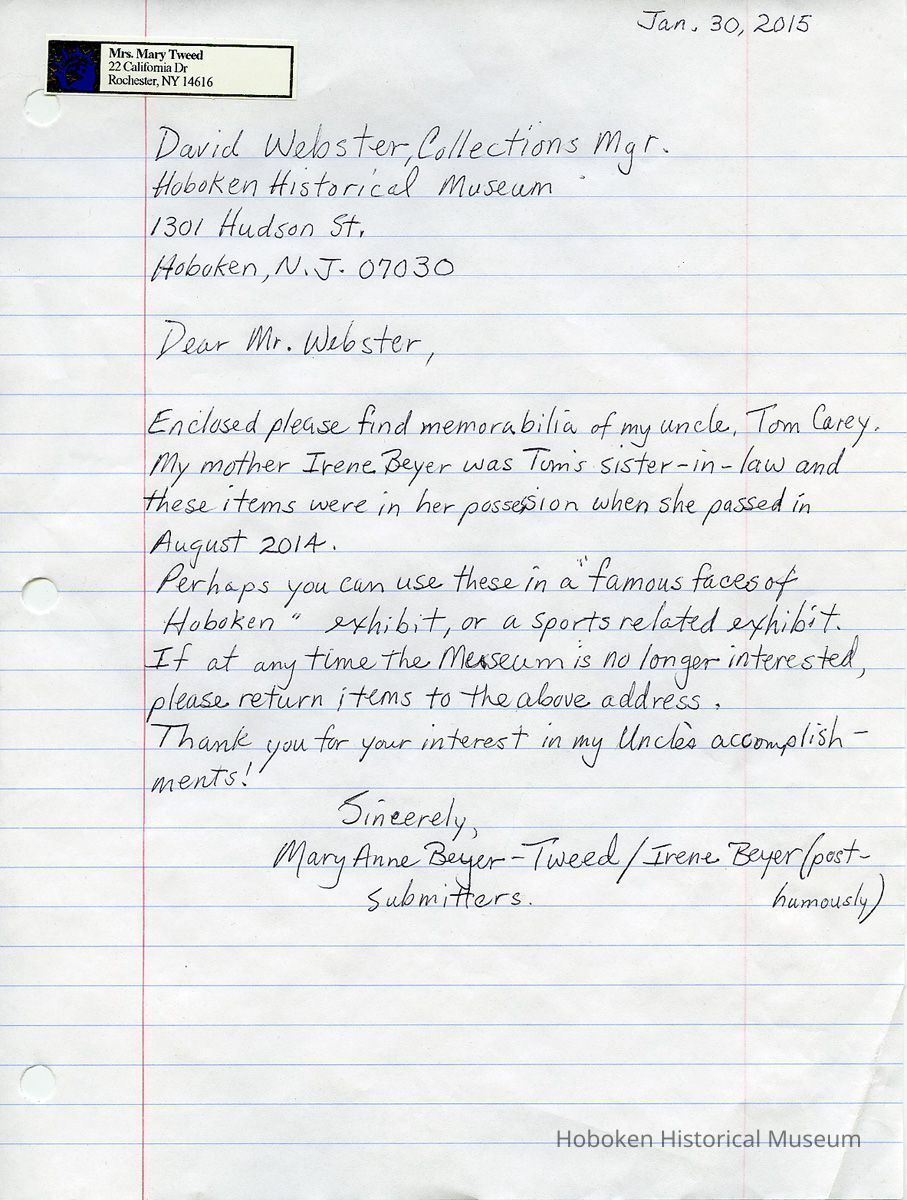 Jan. 30, 2015
Mrs. Mary Tweed
22 California Dr
Rochester, NY 14616
David Webster, Collections Mgr.
Hoboken Historical Museum
1301 Hudson St.
Hoboken, N.J. 07030
Dear Mr. Webster,
Enclosed please find memorabilia of my uncle, Tom Carey.
My mother Irene Beyer was Tom's sister-in-law and
these items were in her possession when she passed in
August 2014.
Perhaps you can use these in a "famous faces of
Hoboken" exhibit, or a sports related exhibit.
If at any time the Museum is no longer interested,
please return items to the above address.
Thank you for your interest in my Uncle's accomplish-
ments!
Sincerely,
Mary Anne Beyer-Tweed/Irene Beyer (post-
submitters. humously)
Hoboken Historical Museum